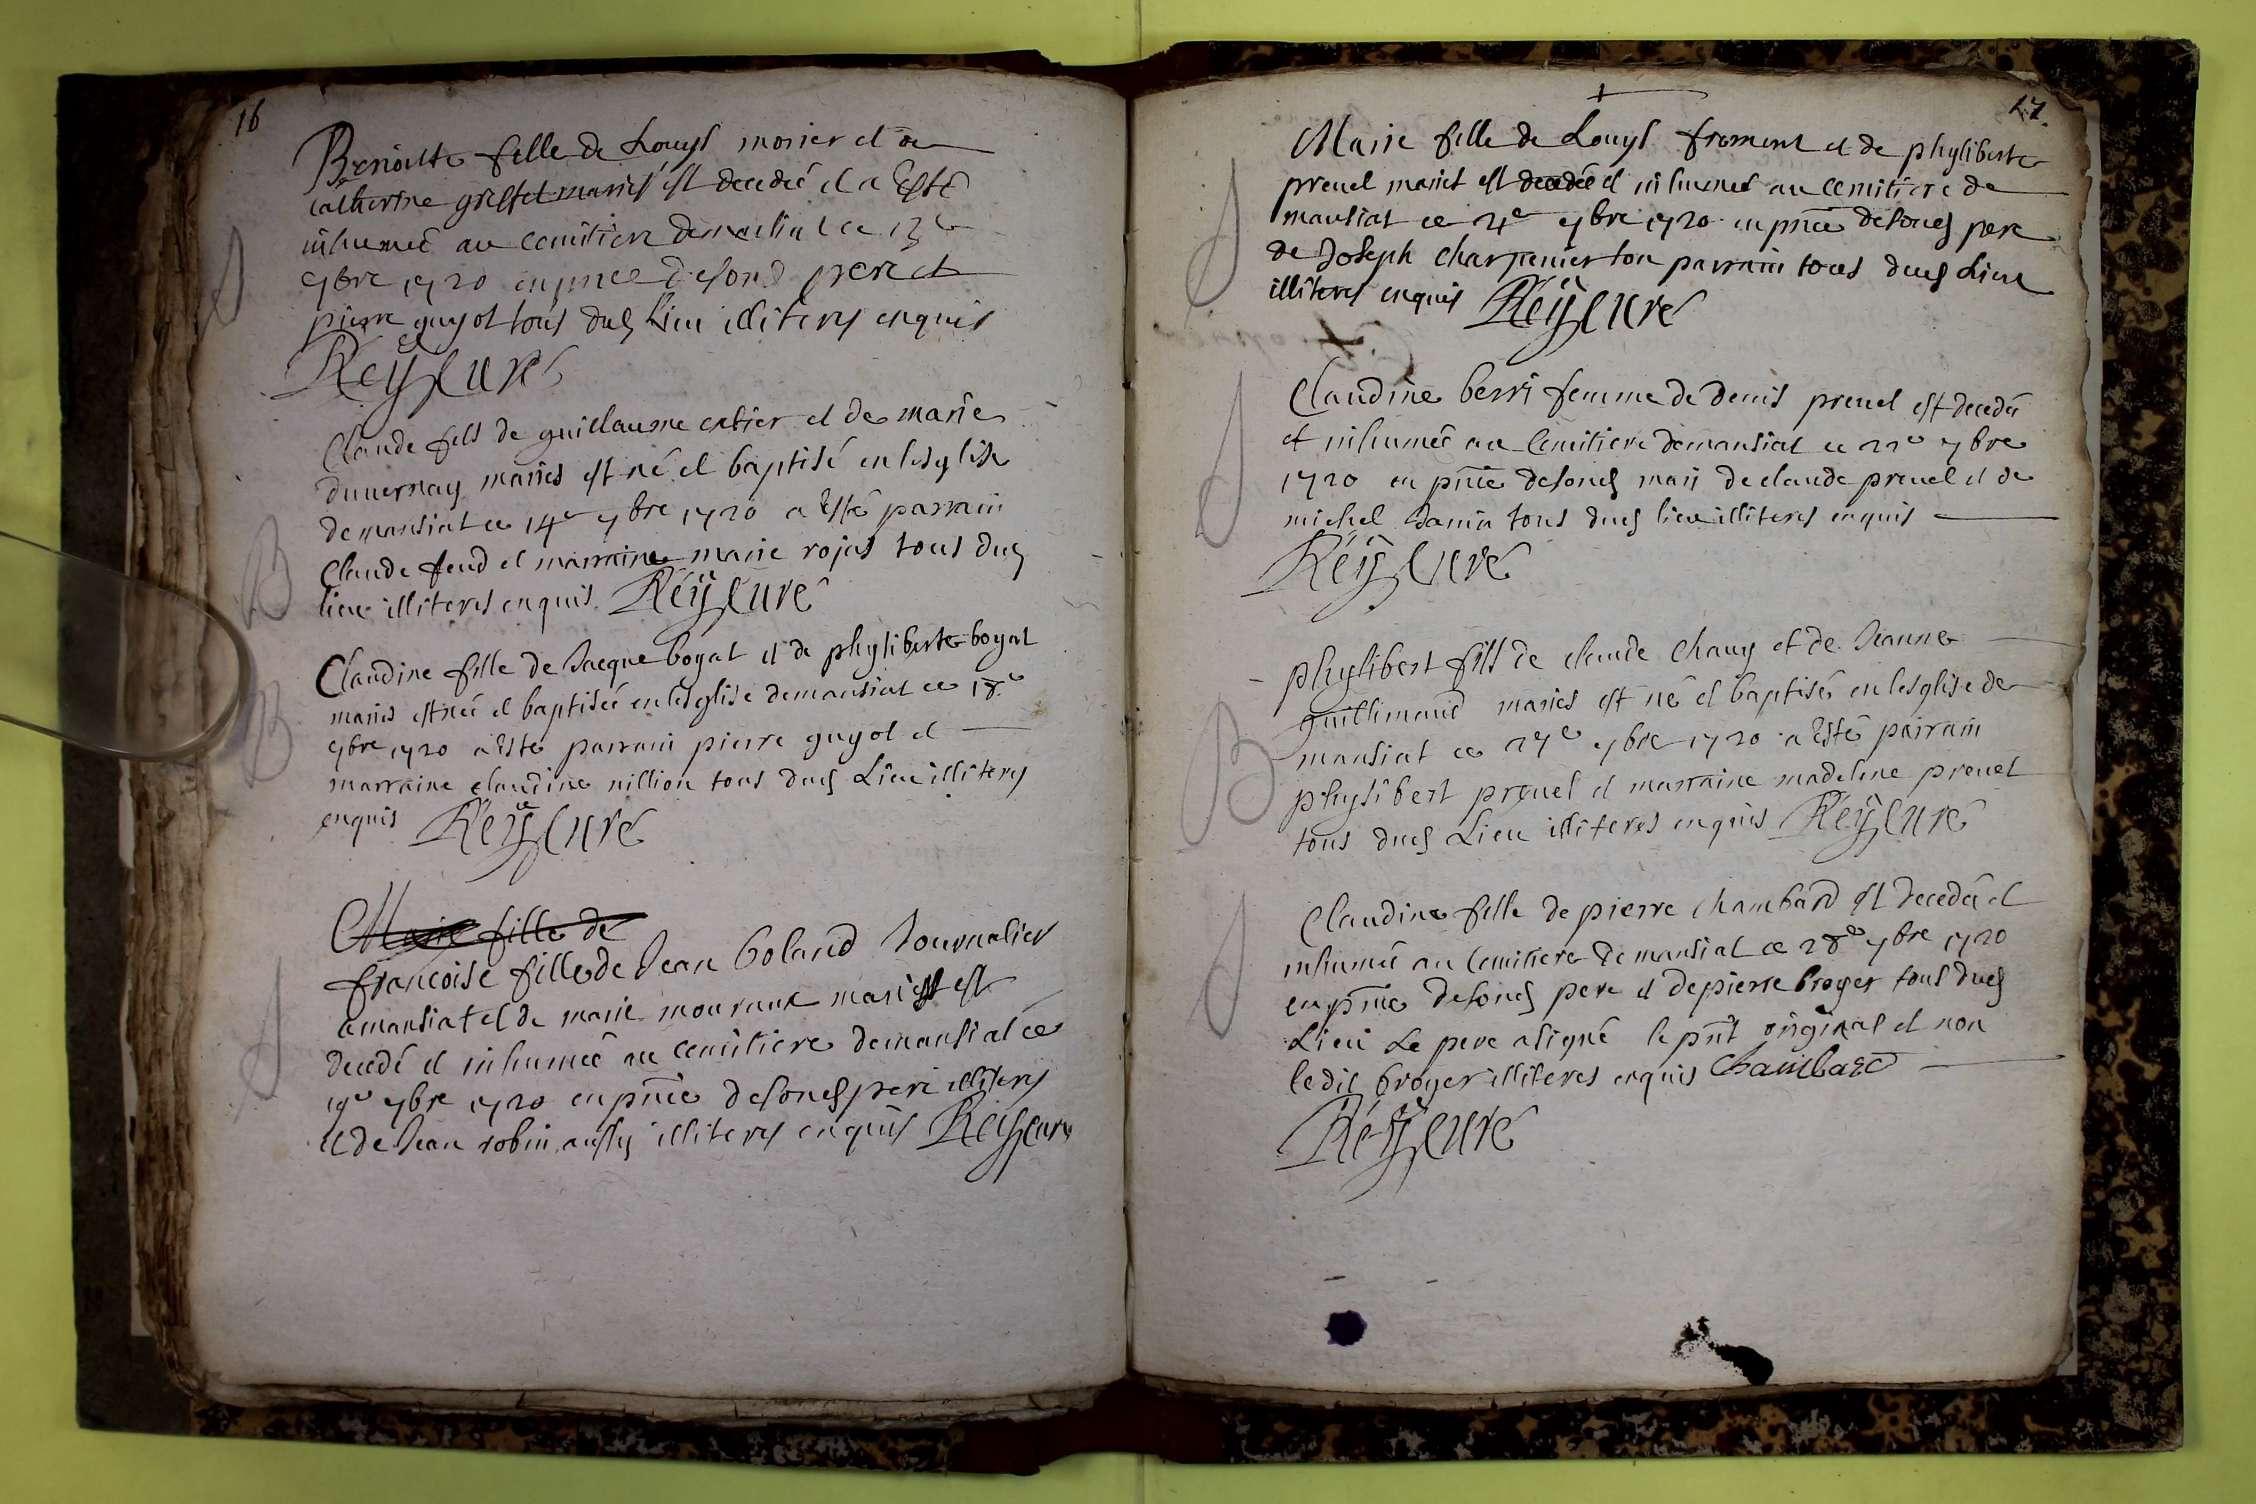 16
Benoitte fille de Louys morier et de
catherine griffet mariés est decedeé et a Esté
inhumeé au cemitiere de mansiat ce 13e
9bre 1720 en pnce de sond pere et
pierre guyot tous dud Lieu illiteres enquis
Réÿ Curé
Claude fils de guillaume catier et de marie
duvernay mariés est né et baptisé en lesglise
de mansiat ce 14e 9bre 1720 a Esté parrain
Claude feud et marraine marie rojas tous dud
lieu illiteres enquis Réÿ Curé
Claudine fille de Jacque boyat et de phyliberte boyat
mariés est neé et baptiseé en lesglise de mansiat ce 18e
9bre 1720 a Esté parrain pierre guyot et
marraine claudine nillion tous dud Lieu illiteres
enquis Réÿ Curé
Marie fille de
francoise fille de Jean boland Journalier
a mansiat et de marie mouraux mariés est
decedé et inhumeé au cemitiere de mansiat ce
19e 9bre 1720 en pnce de sond pere illiteres
et de Jean robin aussy illiteres enquis Réÿ Curé
17.
Marie fille de Louys froment et de phyliberte
preuel mariés est decedée et inhumeé au cemitiere de
mansiat ce 4e 9bre 1720 en pnce de soud pere
de Joseph charpenier son parrain tous dud Lieu
illiteres enquis Réÿ Curé
Claudine berri femme de denis preuel est decedeé
et inhumeé au Cemitiere de mansiat ce 22e 9bre
1720 en pnce de soud mari de claude preuel et de
michel Janin tous dud lieu illiteres enquis
Réÿ Curé
phylibert fils de claude chauy et de Jeanne
guillimaud mariés est né et baptisé en lesglise de
mansiat ce 27e 9bre 1720 a Esté parrain
phylibert preuel et marraine madelene preuel
tous dud Lieu illiteres enquis Réÿ Curé
Claudine fille de pierre chambard est decedeé et
inhumeé au Cemitiere de mansiat ce 28e 9bre 1720
en pnce de soud pere et de pierre broyer tous dud
Lieu Le pere a signé le pnt original et non
ledit broyer illiteres enquis Chambard
Réÿ Curé